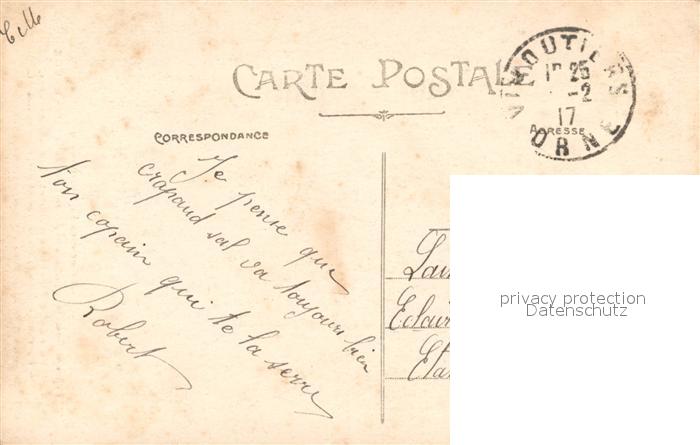 CARTE POSTALE
VIMOUTIERS
25
-2
17
ORNE
CORRESPONDANCE
ADRESSE
Je pense que
crapaud sal va toujours bien
ton copain qui te la serre
Robert
Eclair
Eta
privacy protection
Datenschutz